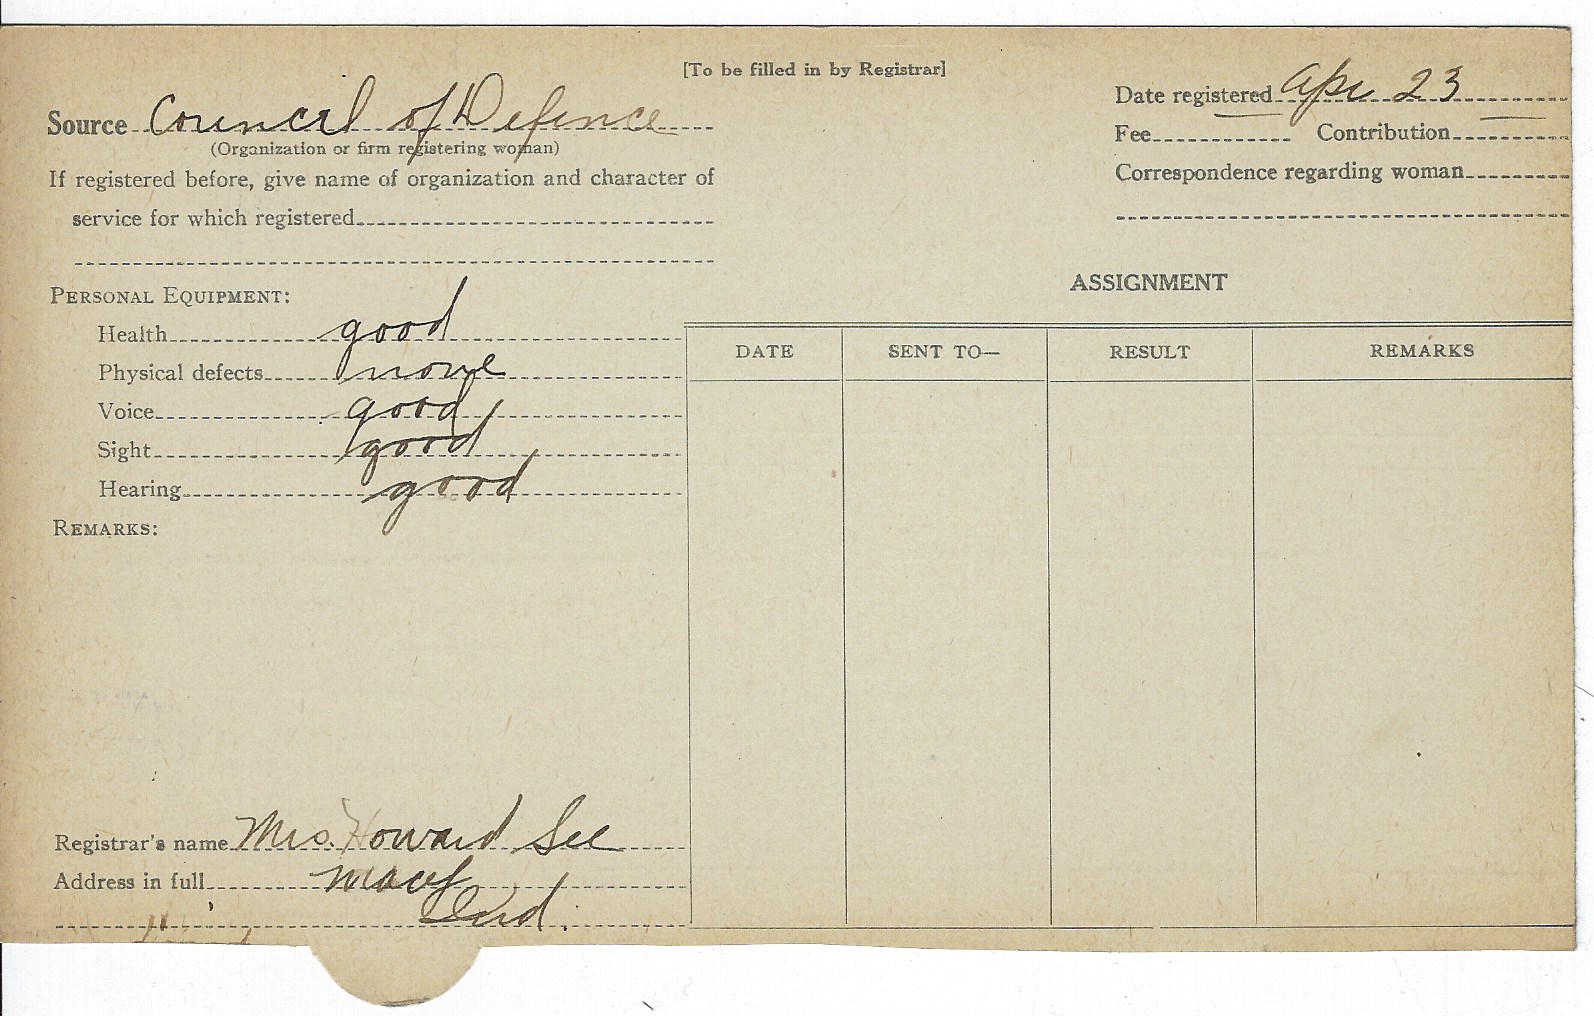 [To be filled in by Registrar]
Source Council of Defence
(Organization or firm registering woman)
If registered before, give name of organization and character of
service for which registered
Date registered Apr 23
Fee Contribution
Correspondence regarding woman
PERSONAL EQUIPMENT:
Health good
Physical defects none
Voice good
Sight good
Hearing good
REMARKS:
ASSIGNMENT
DATE SENT TO— RESULT REMARKS
Registrar's name Mrs. Howard See
Address in full Macy
Ind.